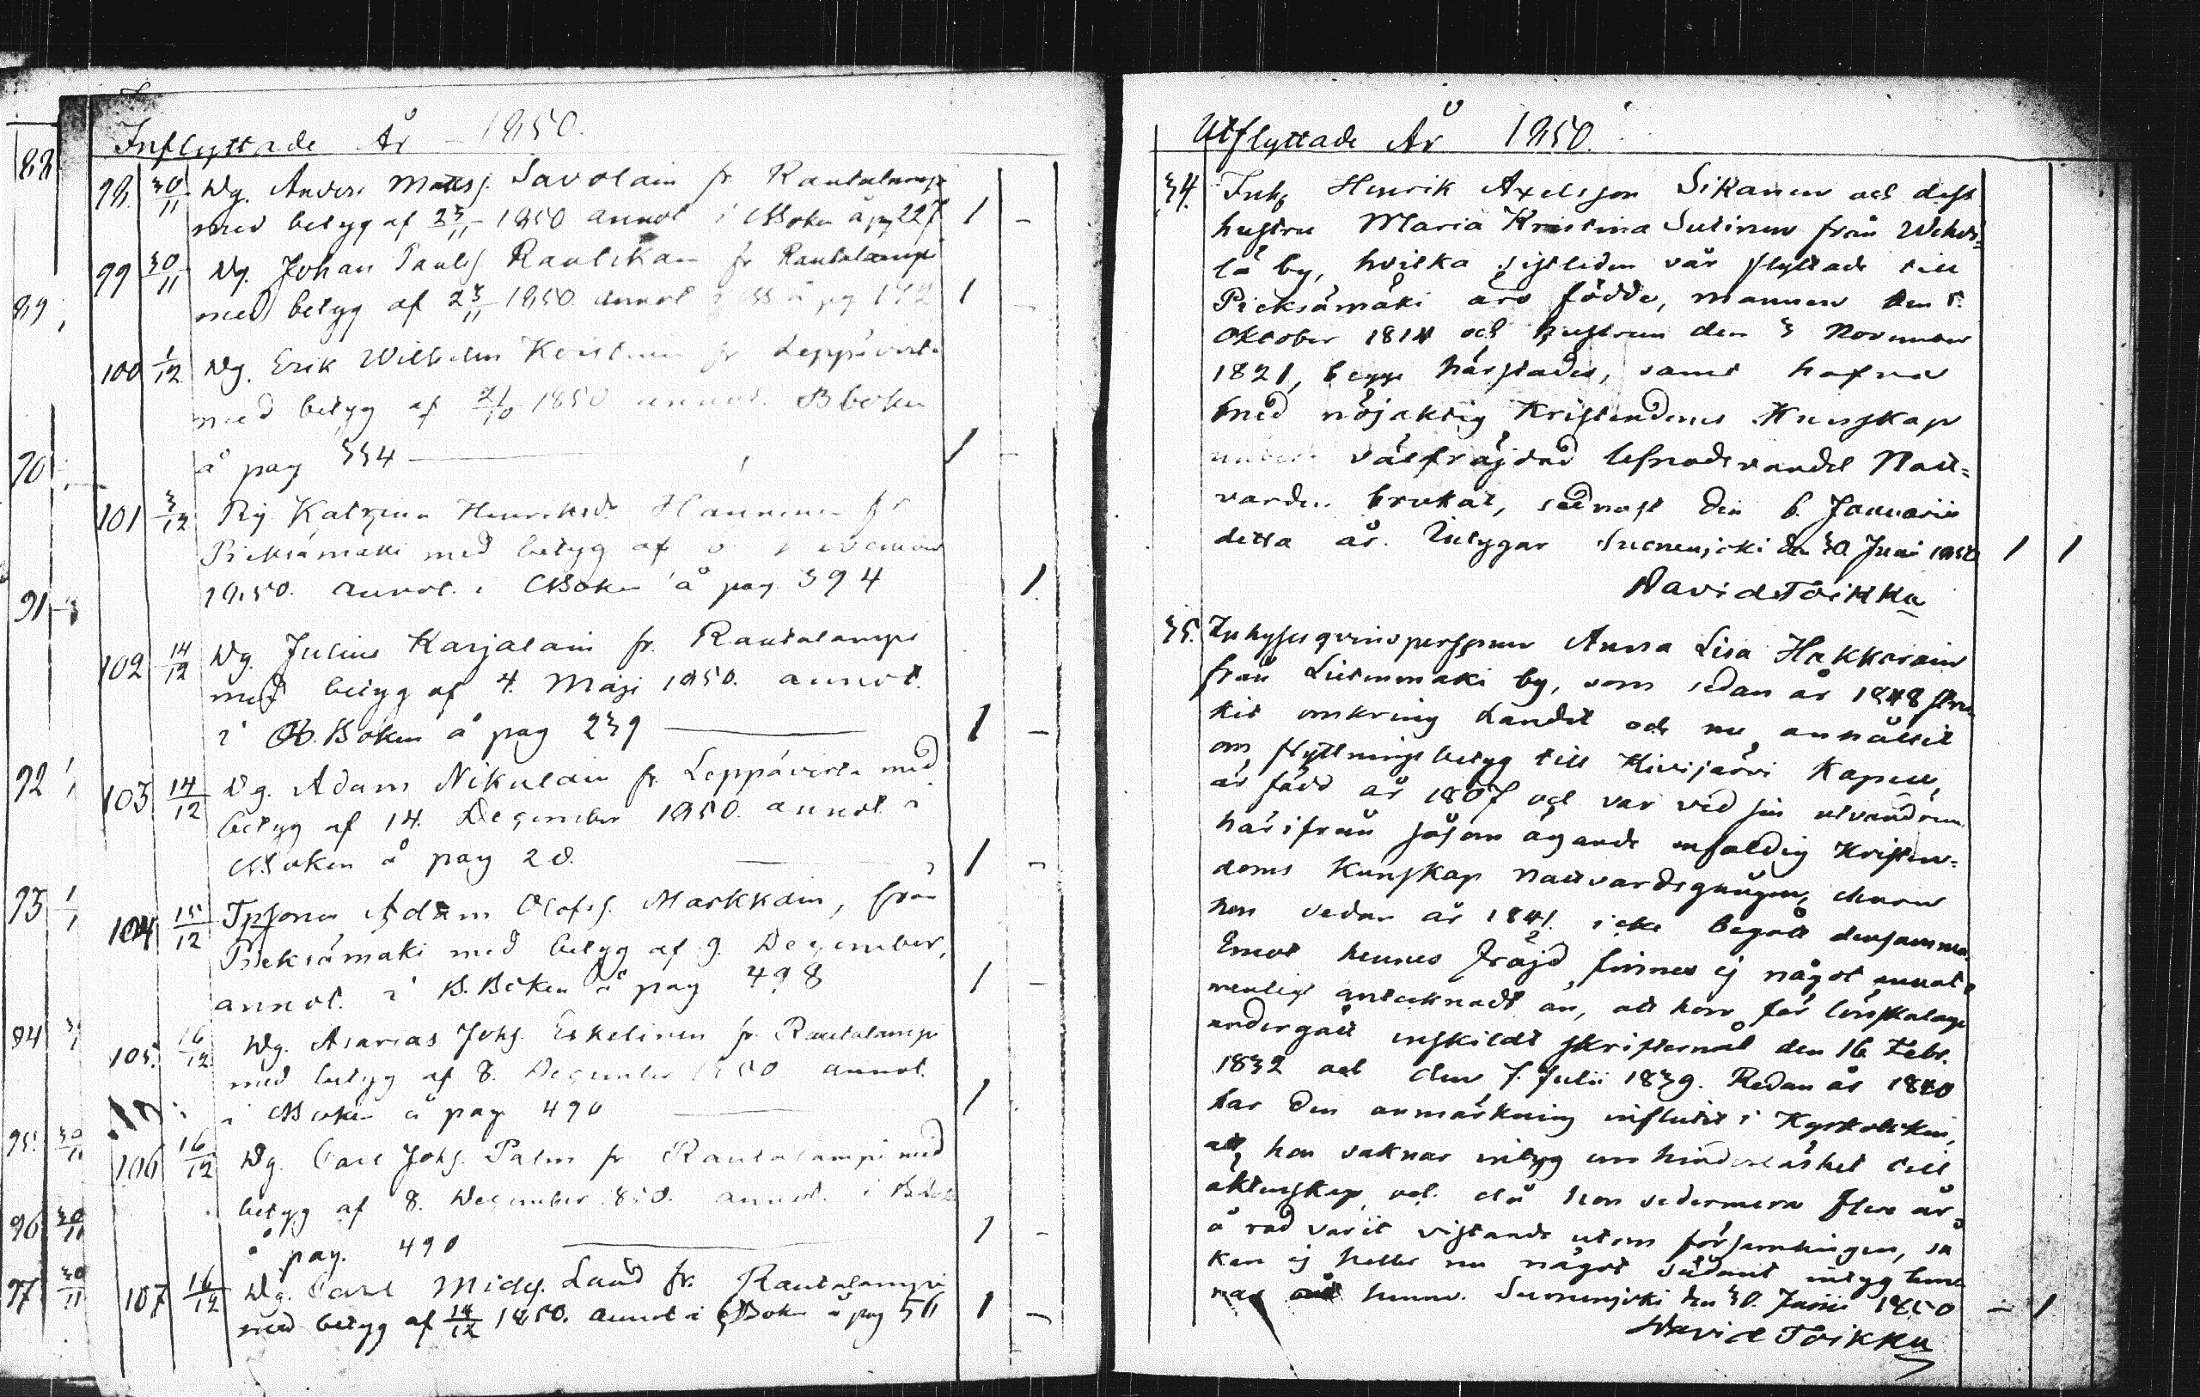 Inflyttade År 1850.
88
98. 30/11 Dg. Anders Mattsf. Savolain fr Rautalampi
med betyg af 23/11 1850 annot i CBoken å pg 227 1 -
99 30/11 Dg. Johan Paulsf. Rautikain fr Rautalampi
89
med betyg af 23/11 1850. annot å pg 142 1 -
100 1/12 Dg. Erik Wilhelm fr Leppävirta
med betyg af 1850 annot. Bboken
å pag 334 1 -
90
101 3/12 Pig. Katrina Henriksd. Hänninen fr
Pieksämäki med betyg af
1850. annot. i CBoken å pag 394 1.
91
102 14/12 Dg. Julius Karjalain fr. Rautalampi
med betyg af 4. Maji 1850. annot.
i Boken å pag 239 1 -
92
103 14/12 Dg. Adam Nikulain fr. Leppävirta med
betyg af 14. December 1850. annot i
Boken å pag 28. 1 -
93 1/1
104 15/12 Adam Olofsf. Markkain, från
Pieksämäki med betyg af 9. December,
annot. i B.Boken å pag 498 1 -
94
105. 16/12 Dg. Asarias Johsf. Eskelinen fr. Rautalampi
med betyg af 8. December 1850 annot.
i CBoken å pag 490 1
95. 30/11
106 16/12 Dg. Carl Johsf. Palm fr Rautalampi med
betyg af 8. December 850. annot. i
å pag. 490 1 -
96 30/11
97 30/11
107 16/12 Dg. Carl Lund fr. Rautalampi
med betyg af 14/12 1850. annot i CBoken å pag 511 1 -
Utflyttade År 1850.
34. Inh Henrik Axelsson Sikanen och dess
hustru Maria Kristina Sutinen från
lä by, hvilka sistliden vår flyttade till
Pieksämäki äro födde, mannen den 5.
Oktober 1814 och hustrun den 3 November
1821, begge härstädes, samt hafva
med nöjaktig Kristendoms Kunskap
under välfräjdad lefnadsvandel Natt-
varden brukat, sednast den 6. Januarii
detta år. Intygar Suonenjoki den 30 Juni 1850 1 1
David Toikka
35. Inhyses qvinspersonen Anna Lisa Hakkarain
från Liemmäki by, som sedan år 1848
kit omkring Landet och nu anmält sit
om flyttningsbetyg till Kivijärvi Kapell,
är född år 1807 och var vid sin utvandrin
härifrån såsom ägande enfaldig Kristen-
doms Kunskap nattvardsgången, churu
hon sedan år 1841. icke begått densamma.
Emot hennes fräjd finnes ej något annat
menligt antecknadt än, att hon för lönskaläge
undergått enskildt skriftermål den 16. Febr.
1832 och den 7. Julii 1839. Redan år 1840
har den anmärkning influtit i Kyrkoboken,
att hon saknar intyg om hinderlöshet till
äktenskap, och då hon sedermera flere år
å rad varit vistande utom församlingen, så
kan ej heller nu något sådant intyg lem-
nas åt henne. Suonenjoki den 30. Junii 1850 - 1
David Toikka